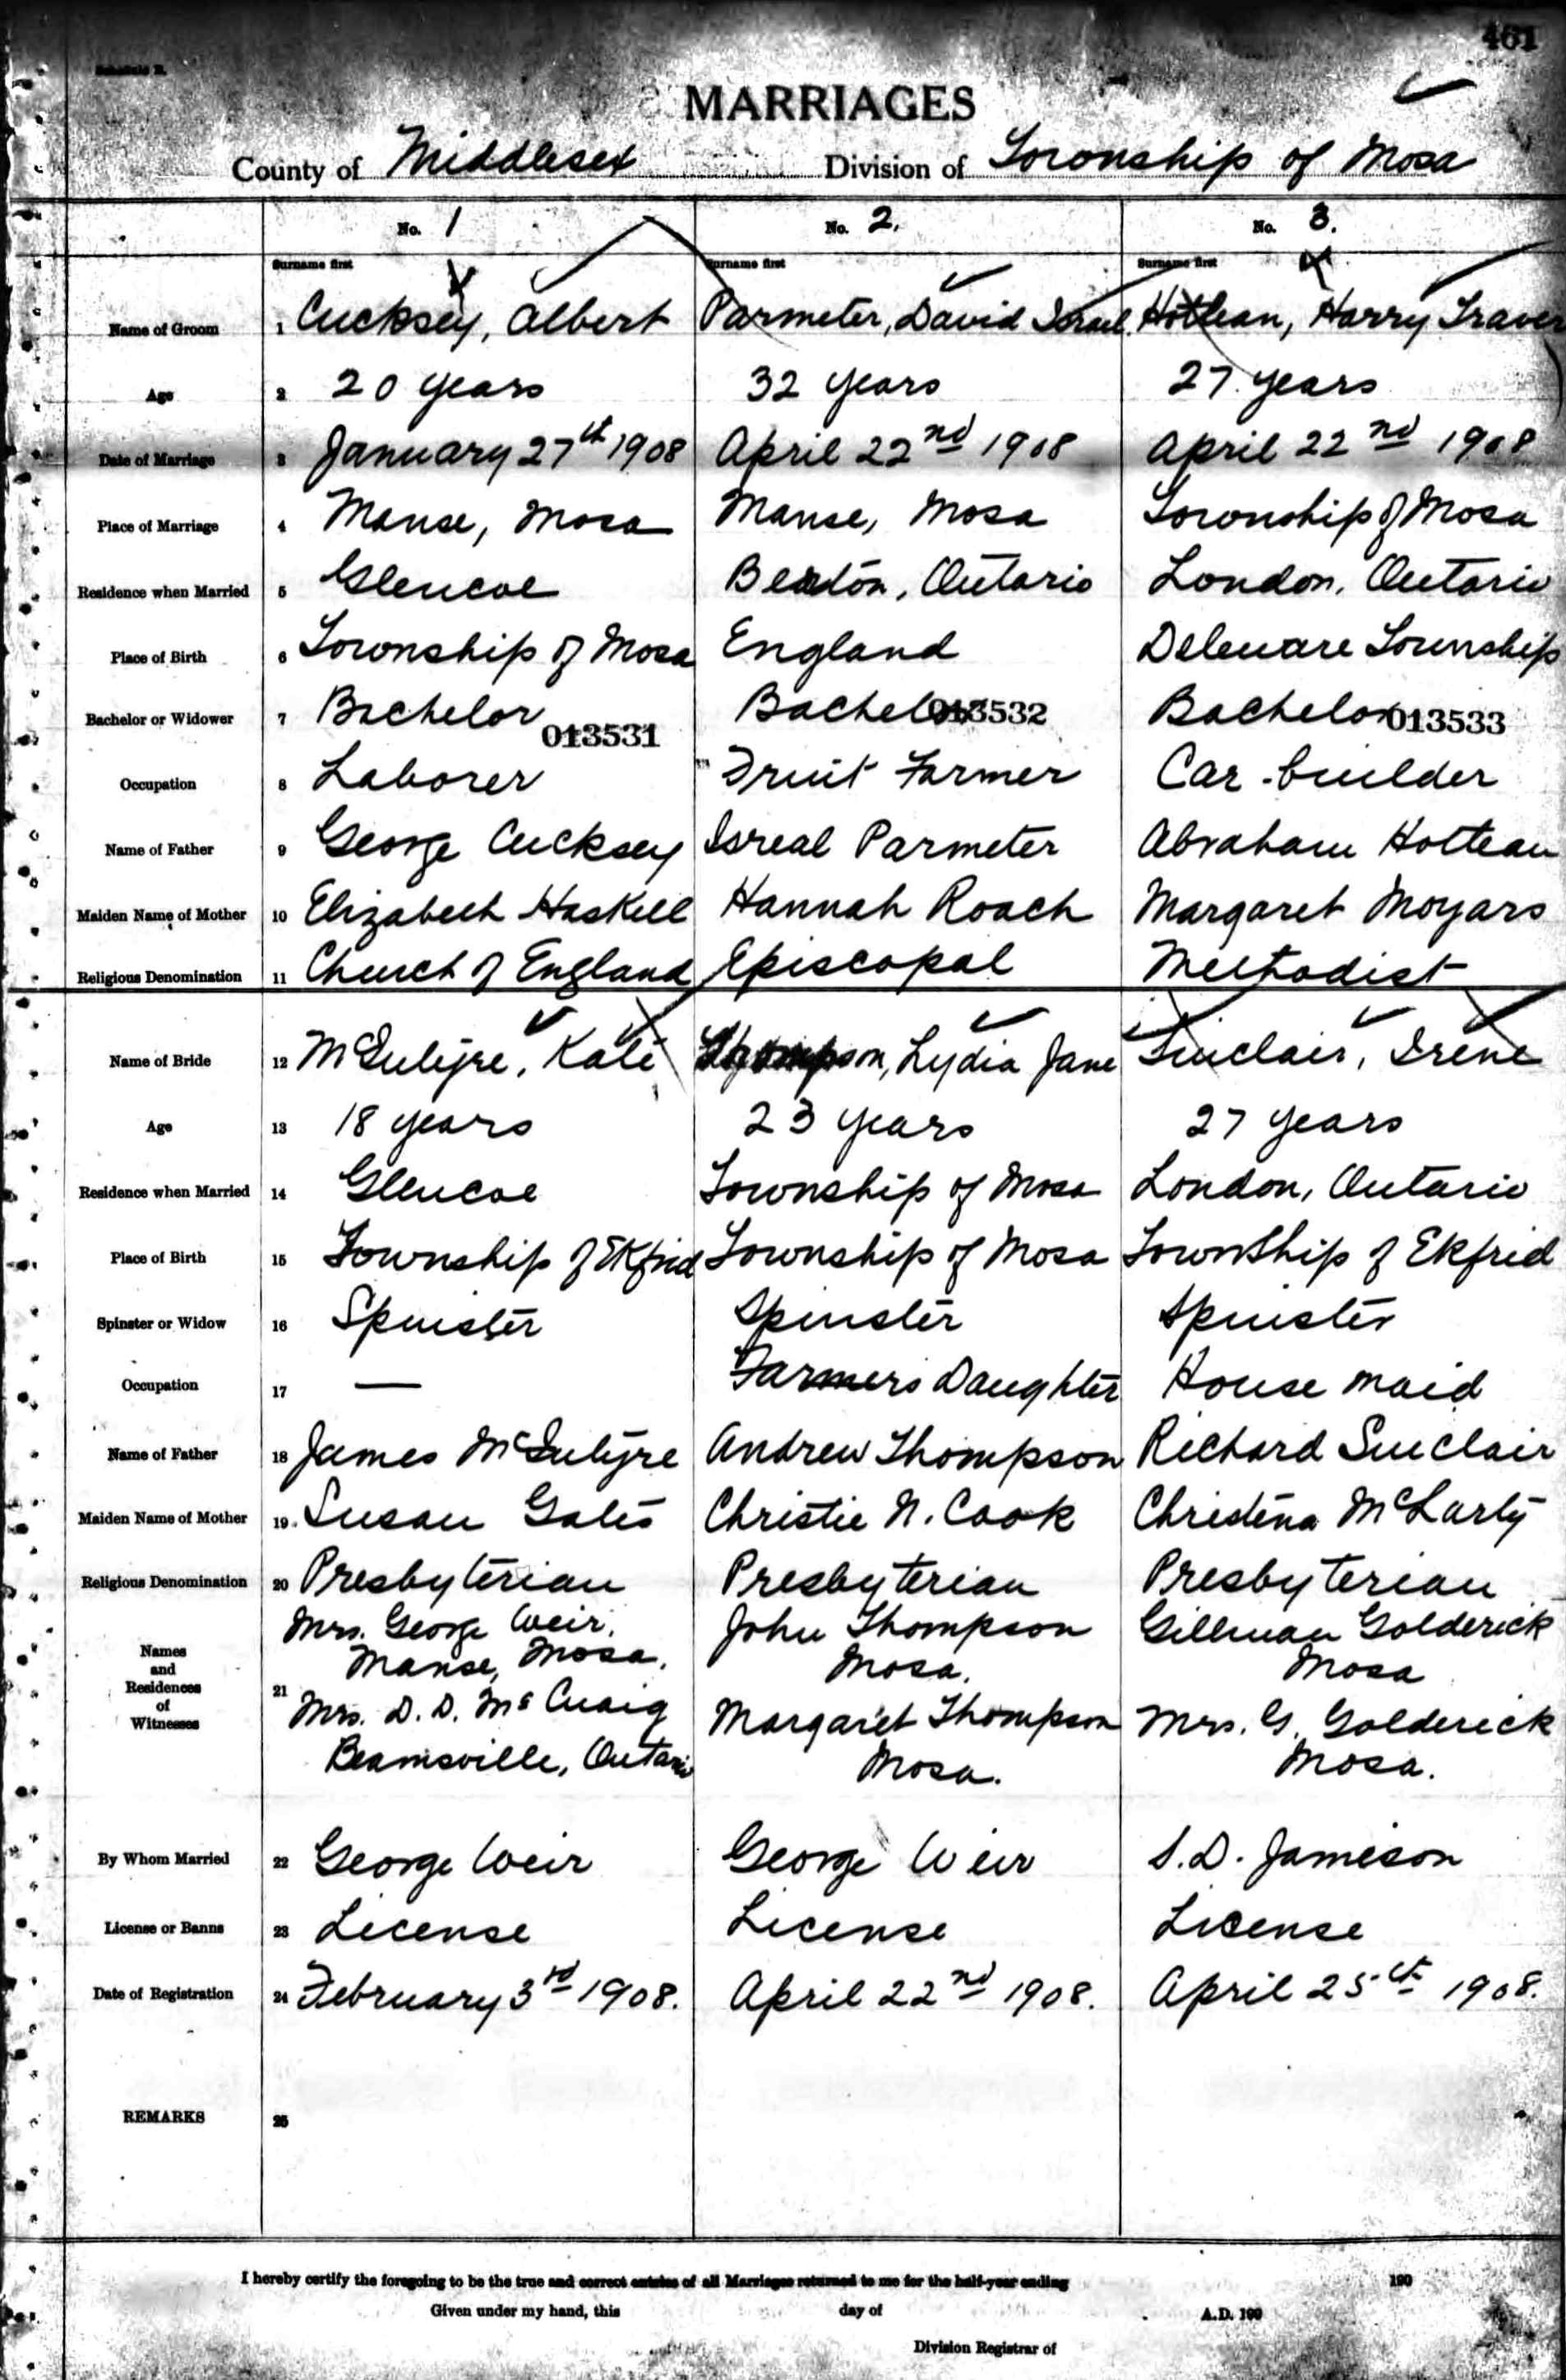 461
Schedule B.
MARRIAGES
County of Middlesex Division of Township of Mosa
No. 1 No. 2. No. 3.
Surname first Surname first Surname first
Name of Groom 1 Cucksey, Albert Parmeter, David Israel Hottean, Harry Traver
Age 2 20 years 32 years 27 years
Date of Marriage 3 January 27th 1908 April 22nd 1908 April 22nd 1908
Place of Marriage 4 Manse, Mosa Manse, Mosa Township of Mosa
Residence when Married 5 Glencoe Ontario London, Ontario
Place of Birth 6 Township of Mosa England Deleware Township
Bachelor or Widower 7 Bachelor 013531 Bachelor 013532 Bachelor 013533
Occupation 8 Laborer Fruit Farmer Car-builder
Name of Father 9 George Cucksey Isreal Parmeter Abraham Hottean
Maiden Name of Mother 10 Elizabeth Haskell Hannah Roach Margaret Moyars
Religious Denomination 11 Church of England Episcopal Methodist
Name of Bride 12 McIntyre, Kate Thompson, Lydia Jane Sinclair, Irene
Age 13 18 years 23 years 27 years
Residence when Married 14 Glencoe Township of Mosa London, Ontario
Place of Birth 15 Township of Ekfrid Township of Mosa Township of Ekfrid
Spinster or Widow 16 Spinster Spinster Spinster
Occupation 17 — Farmers Daughter House maid
Name of Father 18 James McIntyre Andrew Thompson Richard Sinclair
Maiden Name of Mother 19 Susan Gates Christie N. Cook Christena McLarty
Religious Denomination 20 Presbyterian Presbyterian Presbyterian
Names and Residences of Witnesses 21
Mrs. George Weir, John Thompson Gillman Golderick
Manse, Mosa. Mosa. Mosa
Mrs. D. D. McCuaig Margaret Thompson Mrs. G. Golderick
Beamsville, Ontario Mosa. Mosa.
By Whom Married 22 George Weir George Weir S.D. Jameson
License or Banns 23 License License License
Date of Registration 24 February 3rd 1908. April 22nd 1908. April 25th 1908.
REMARKS 25
I hereby certify the foregoing to be the true and correct entries of all Marriages returned to me for the half-year ending 190
Given under my hand, this day of A.D. 190
Division Registrar of